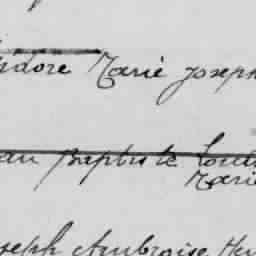 idore Marie Joseph
ean Baptiste Louis
Marie
oseph Ambroise